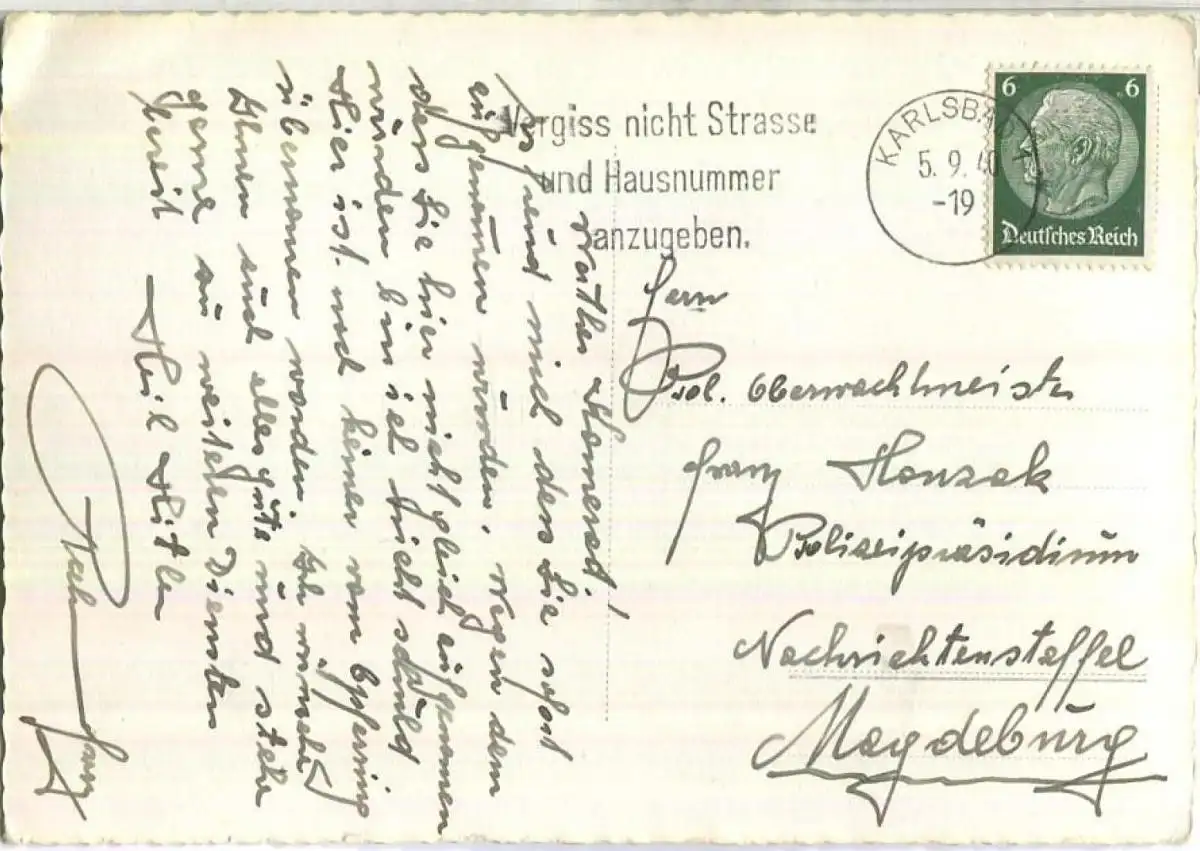 Vergiss nicht Strasse
und Hausnummer
anzugeben.
KARLSBAD
5.9.40
-19
6 6
Deutsches Reich
Herrn
Pol. Oberwachtmeister
Franz Honzak
Polizeipräsidium
Nachrichtenstaffel
Magdeburg
Werther Kamerad!
Es freud mich dass Sie sofort
aufgenomen wurden. wegen dem
dass Sie hier nicht gleich aufgenommen
wurden bin ich nicht schuld
Hier ist auch keiner vom
übernomen worden. Ich wünsche
Ihnen auch alles gute und stehe
gerne zu weiteren Diensten
bereit Heil Hitler